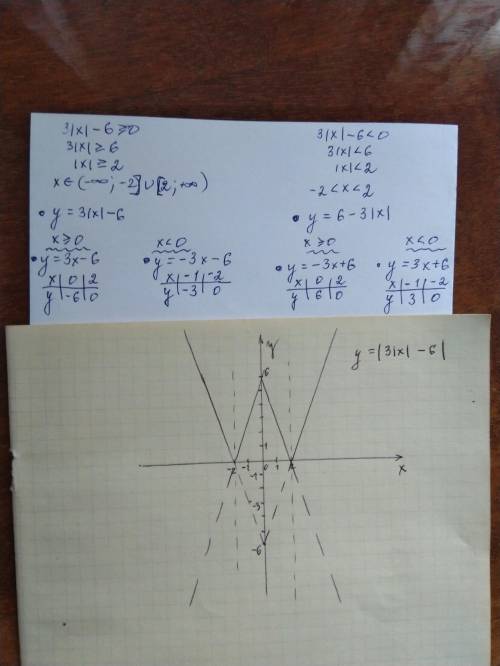 3|x| - 6 ≥ 0
3|x| ≥ 6
|x| ≥ 2
x ∈ (-∞; -2] ∪ [2; +∞)
• y = 3|x| - 6
x ≥ 0
• y = 3x - 6
x | 0 | 2
y | -6 | 0
x < 0
• y = -3x - 6
x | -1 | -2
y | -3 | 0
3|x| - 6 < 0
3|x| < 6
|x| < 2
-2 < x < 2
• y = 6 - 3|x|
x ≥ 0
• y = -3x + 6
x | 0 | 2
y | 6 | 0
x < 0
• y = 3x + 6
x | -1 | -2
y | 3 | 0
y = |3|x| - 6|
y
6
1
-2 -1 0 1 2
x
-1
-3
-6